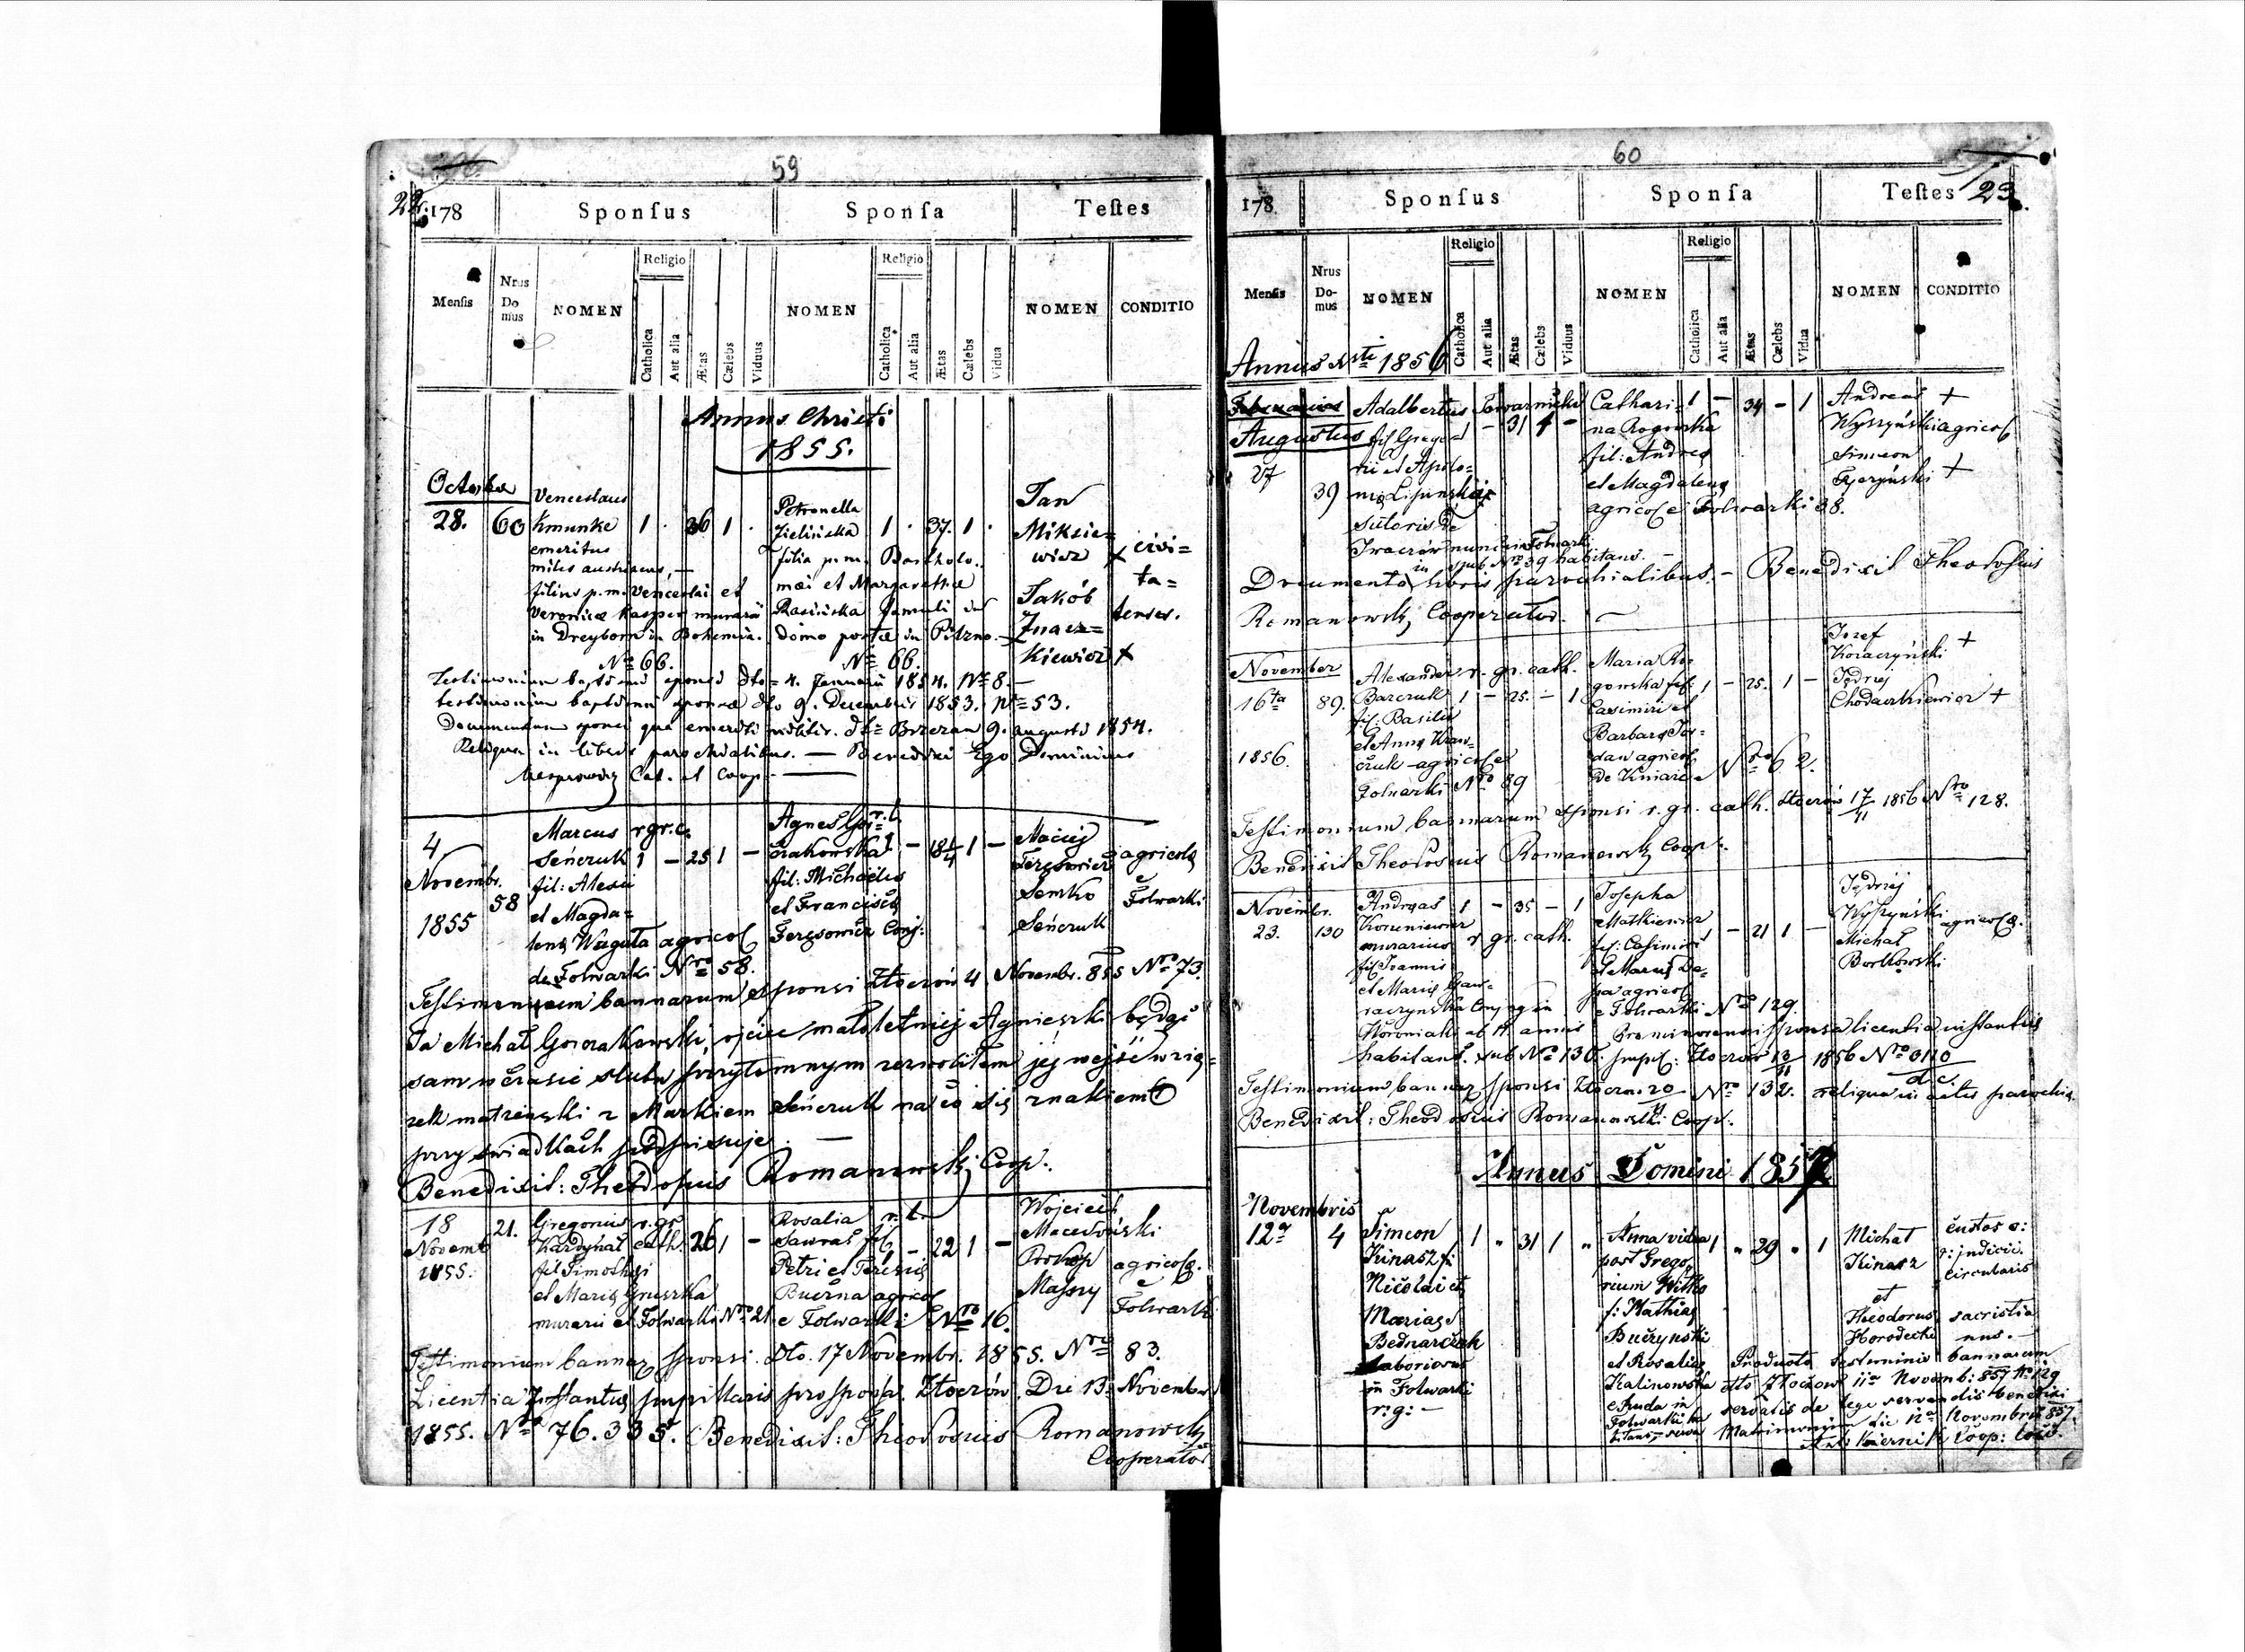 59
22. 178 Sponſus Sponſa Teſtes
Menſis Nrus Domus NOMEN Religio Catholica Aut alia Ætas Cælebs Viduus NOMEN Religio Catholica Aut alia Ætas Cælebs Vidua NOMEN CONDITIO
Annus Christi
1855.
October
28. 60
Venceslaus
Kmunke 1 . 36 1 .
emeritus
miles austriacus, —
filius p.m. Venceslai et
Veronicæ Kasper murarii
in Dreyborn in Bohemia.
Nro 66.
Petronella
Zielińska 1 . 37. 1 .
filia p.m. Bartholo-
mæi et Margarethæ
Rasińska famuli in
domo postæ in Pilzno.
Nro 66.
Jan
Miksie=
wicz +
Jakób
Znacz=
kiewicz +
civi=
ta=
tenses.
Testimonium baptismi sponsi dto 4. Januarii 1854. Nro 8. —
testimonium baptismi sponsæ dto 9. Decembris 1853. Nro 53.
Documentum sponsi qua emeriti militis. dto Brzezan 9. augusti 1854.
Reliqua in libris parochialibus. — Benedixi Ego Dominicus
Cat. et Coop.
4
Novembr.
1855
58
Marcus r.gr.c.
Seńczuk 1 — 25 1 —
fil: Alexii
et Magda=
lenę Waguła agricol
de Folwarki Nro 58.
Agnes Gor= r.l.
czakowska 1 — 18 1/4 1 —
fil: Michaëlis
et Franciscę
Feręsowicz Conj:
Maciej
Feręsowicz
Semko
Seńczuk
agricolę
e
Folwarki
Testimonium bannarum sponsi Złoczów 4 Novembr. 855 Nro 73.
Ja Michał Gorczakowski, ojciec małoletniej Agnieszki będąc
sam w czasie ślubu przytomnym zezwoliłem jej wejść w zwią=
zek małżeński z Markiem Seńczuk na co się znakiem +
przy świadkach podpisuję. —
Benedixit: Theodosius Romanowski Coop:.
18
Novemb
1855.
21.
Gregorius r.gr.
Kardynał cath. 26 1 —
fil Timothei
et Marię Gruszka
murarii et Folwarki Nro 21
Rosalia r.l.
Sawras fil 1 — 22 1 —
Petri et Teresię
Buczna agricol
e Folwarki Nro 16.
Wojciech
Macedoński
Prokop
Majory
agricolę.
e
Folwarki
Testimonium bannar Sponsi. Dto. 17 Novembr. 1855. Nro 83.
Licentia Instantię pupillaris pro sponsa. Złoczów. Die 13. Novembr
1855. Nro 76.335. Benedixit: Theodosius Romanowski
Cooperator
60
178 Sponſus Sponſa Teſtes 23.
Menſis Nrus Domus NOMEN Religio Catholica Aut alia Ætas Cælebs Viduus NOMEN Religio Catholica Aut alia Ætas Cælebs Vidua NOMEN CONDITIO
Annus Xsti 1856
Februarius
Augustus
27
39
Adalbertus Towarnicki
fil Grego= 1 — 31 1 —
rii et Apolo=
nię Lipinskię
sutoris de
Iwaczów nunc in Folwarki
sub Nro 39 habitans. —
Cathari= 1 — 34 — 1
na Rogowska
fil: Andreę
et Magdalenę
agricol e Folwarki 38.
Andreas +
Wyszyński agricol
Simeon
+
Documenta in libris parochialibus. — Benedixit Theodosius
Romanowski Cooperator. —
November
16ta
1856.
89.
Alexander r. gr. cath.
Barczuk 1 — 25. — 1
fil: Basilii
et Annę Kraw=
czuk agricol e
Folwarki Nro 89
Maria Ro=
gowska fil. 1 — 25. 1 —
Casimiri et
Barbarę Jor=
dan agricol
de Kniaże Nro 62.
Jozef
Koraczyński +
Jędrzej
Chodaczkiewicz +
Testimonium bannarum sponsi r. gr. cath. Złoczów 17/11 1856 Nro 128.
Benedixit Theodosius Romanowski Coop:.
Novembr.
23.
130
Andreas 1 — 35 — 1
Korzeniewicz
murarius r gr. cath.
fil Joannis
et Marię
Conjug in
Woroniaki ab 11 annis
habitans. sub Nro 130.
Josepha
Matkiewicz
fil: Casimiri 1 — 21 1 —
et Marię
agricol
e Folwarki Nro 129.
Pro minorenni sponsa licentia instantię
pupil: Złoczów 13/11 1856 Nro 6110
Jędrzej
Wyszyński
Michał
Borkowski
agricolę.
Testimonium bannar sponsi Złoczów. 20/11 Nro 132. reliqua in actis parochię.
Benedixit: Theodosius Romanowski Coop:.
Annus Domini 1857
Novembris
12a 4
Simeon 1 „ 31 1 „
Kinasz f:
Nicolai et
Mariæ
Bednarczuk
laboriosus
in Folwarki
r: g: —
Anna vidua 1 „ 29 „ 1
post Grego-
rium Witko
f: Mathiæ
Buczynski
et Rosaliæ
Kalinowska
e Ruda in
Folwarki ha
bitans,
Michał
Kinasz
et
Theodorus
Horodecki
custos c:
r: judicii
circularis
sacristia
nus. —
Producto testimonio bannarum
dto Złoczow 11a Novemb: 857 Nro 129
servatis de lege servandis benedixi
Matrimonium die 12a Novembris 857.
Ant: Kiernik Coop: loci.